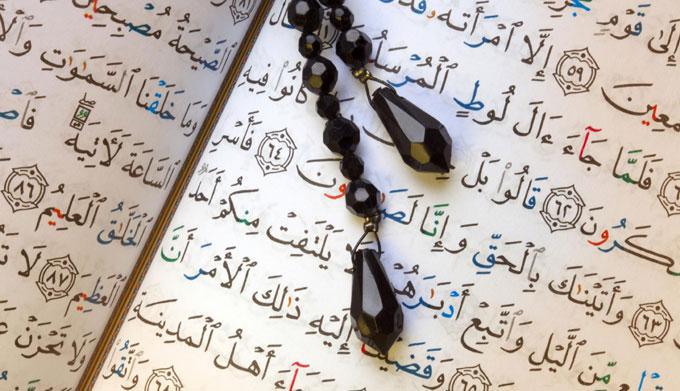 إِلَىٰ قَوْمٍ
إِلَّا ٱمْرَأَتَهُۥ ٥٩
فَلَمَّا جَآءَ ءَالَ لُوطٍ ٱلْمُرْسَلُونَ
٦٢ قَالُوا۟ بَلْ كَانُوا۟ فِيهِ
٦٣ وَأَتَيْنَٰكَ بِٱلْحَقِّ وَإِنَّا لَصَٰدِقُونَ ٦٤ فَأَسْرِ
مِّنَ ٱلَّيْلِ وَٱتَّبِعْ أَدْبَٰرَهُمْ وَلَا يَلْتَفِتْ مِنكُمْ أَحَدٌ
وَقَضَيْنَآ إِلَيْهِ ذَٰلِكَ ٱلْأَمْرَ أَنَّ
أَهْلُ ٱلْمَدِينَةِ
وَٱتَّقُوا۟
ٱلصَّيْحَةُ مُصْبِحِينَ
وَمَا خَلَقْنَا ٱلسَّمَٰوَٰتِ
ٱلسَّاعَةَ لَءَاتِيَةٌ
ٱلْخَلَّٰقُ ٱلْعَلِيمُ ٨٦
ٱلْعَظِيمَ ٨٧ لَا
وَلَا تَحْزَنْ